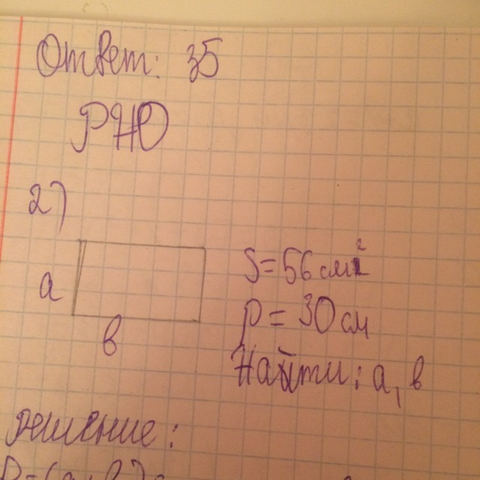 Ответ: 35
РНО
2)
S=56 см²
а
р = 30 см
в
Найти: а, в
решение: